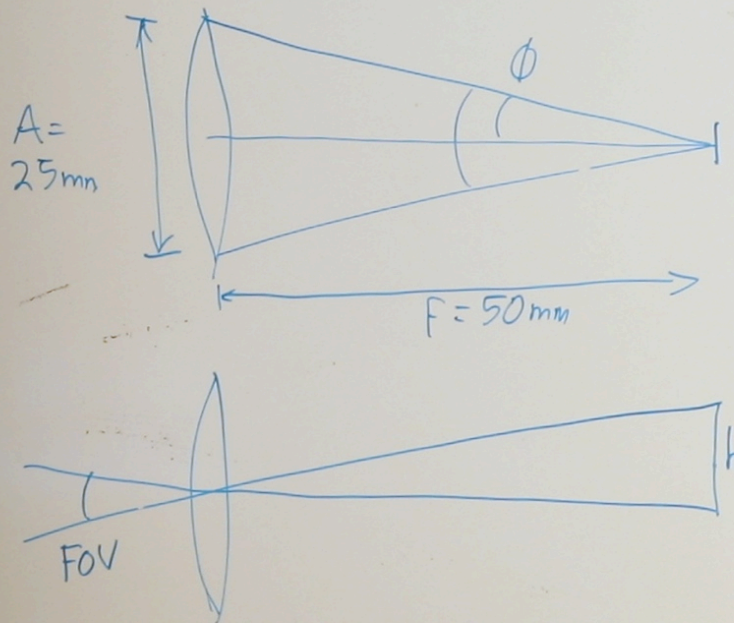 ϕ
A=
25mm
F=50mm
FOV